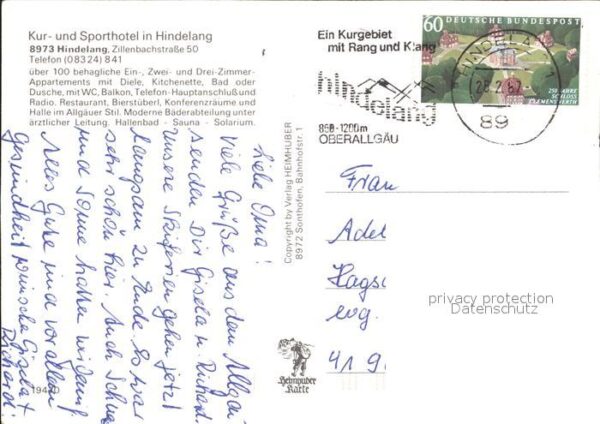 Kur- und Sporthotel in Hindelang
8973 Hindelang, Zillenbachstraße 50
Telefon (08324) 841
über 100 behagliche Ein-, Zwei- und Drei-Zimmer-
Appartements mit Diele, Kitchenette, Bad oder
Dusche, mit WC, Balkon, Telefon-Hauptanschluß und
Radio. Restaurant, Bierstüberl, Konferenzräume und
Halle im Allgäuer Stil. Moderne Bäderabteilung unter
ärztlicher Leitung. Hallenbad - Sauna - Solarium.
Liebe Oma!
Viele Grüße aus dem Allgäu
senden Dir Gisela u. Richard.
Unsere Skiferien gehen jetzt
langsam zu Ende. Es war
sehr schön hier. Auch Schnee
und Sonne hatten wir
Alles Gute und vor allem
Gesundheit wünschen Gisela +
Richard!
19440
Copyright by Verlag HEIMHUBER
8972 Sonthofen, Bahnhofstr. 1
Heimhuber
Karte
Ein Kurgebiet
mit Rang und Klang
hindelang
850-1200m
OBERALLGÄU
HINDELANG 1
28.2.87
89
60 DEUTSCHE BUNDESPOST
250 JAHRE
SCHLOSS
CLEMENSWERTH
Frau
Adel
Hags
evg.
41 9
privacy protection
Datenschutz